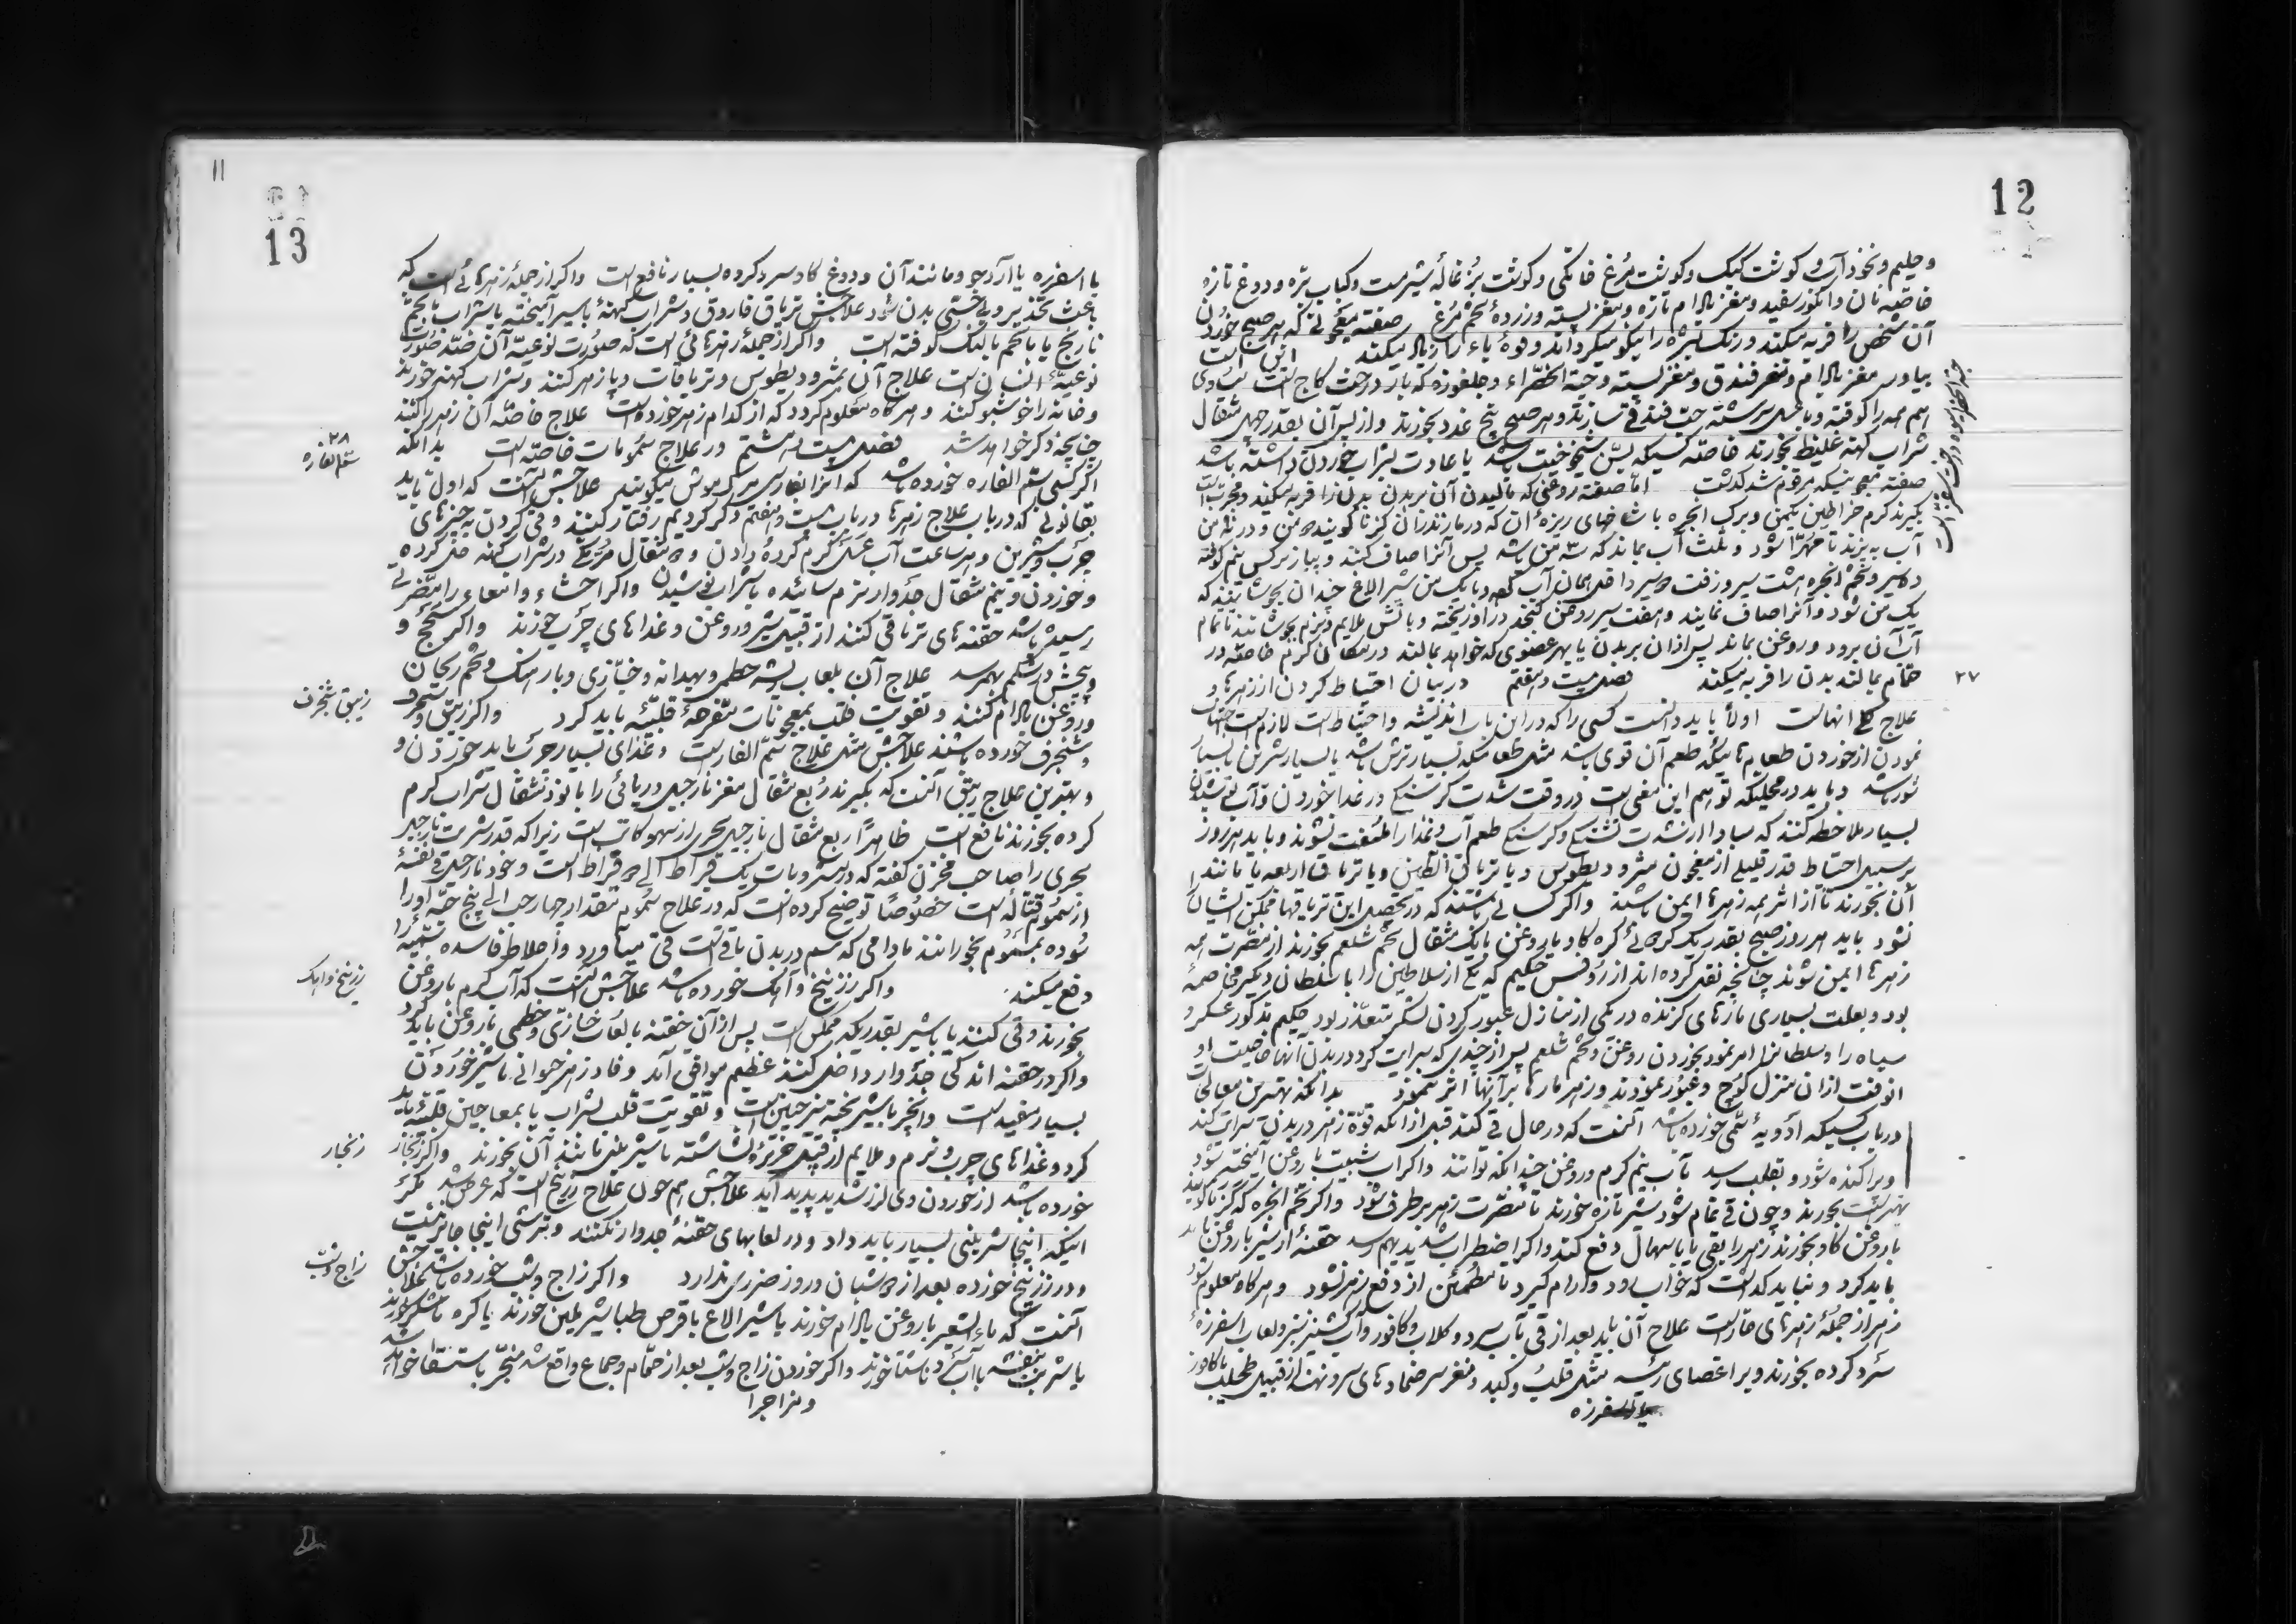 12
و حلیم و نخود آب و گوشت کبک و گوشت مرغ خانگی و گوشت بزغاله شیرمست و کباب بره و دوغ تازه
خاصه نان و انگور سفید و مغز بادام تازه و مغز پسته و زرده تخم مرغ صفته معجونی که هر صبح خوردن
آن شخص را فربه میکند و رنگ بشره را نیکو میگرداند و قوه باه را زیاد میکند این است
بیاورد مغز بادام و مغز فندق و مغز پسته و حبة الخضراء و جلغوزه که بار درخت کاج است مساوی
همه را کوفته و با عسل سرشته حب فندقی سازند و هر صبح پنج عدد بخورند و از پس آن بقدر چهل مثقال
شراب کهنه غلیظ بخورند خاصه کسیکه بسن شیخوخیت باشد یا عادت بشراب خوردن داشته باشد
صفته معجونیکه مرقوم شد گذشت اما صفته روغنی که مالیدن آن بر بدن بدن را فربه میکند و مجرب است
بگیرند کرم خراطین یکمن و برگ انجره با شاخهای ریزه آن که در مازندران گزنا گویند من و در من
آب به پزند تا مهرا شود و ثلث آب بماند که سه من باشد پس آنرا صاف کنند و پیاز نرگس نیم کوفته
ده سیر و تخم انجره هشت سیر و زفت سیر داخل همان آب کرده با یک من شیر الاغ چندان بجوشانند که
یک من شود و آنرا صاف نمایند و هفت سیر روغن کنجد در او ریخته و باتش ملایم و نرم بجوشانند تا تمام
آب آن برود و روغن بماند پس ازان بر بدن یا بهر عضوی که خواهد بمالند در مکان گرم خاصه در
حمام بمالند بدن را فربه میکند فصل بیست و هفتم در بیان احتیاط کردن از زهرها و
۲۷
علاج انهاست اولا باید دانست کسی را که در این باب اندیشه و احتیاط است لازم است اجتناب
نمودن از خوردن طعام تا میکه طعم آن قوی باشد مثل طعامیکه بسیار ترش باشد یا بسیار شیرین یا بسیار
شور باشد و باید در محلیکه توهم این معنی است در وقت شدت گرسنگی در غذا خوردن و آب نوشیدن
بسیار ملاحظه کنند که مبادا از شدت تشنگی و گرسنگی طعم آب و غذا را ملتفت نشوند و باید هر روز
بر سبیل احتیاط قدر قلیلی از معجون مثرودیطوس و یا تریاق الطین و یا تریاق اربعه یا مانند
آن بخورند تا از اثر همه زهرها ایمن باشند و اگر کسانی باشند که در تحصیل این تریاقها ممکن ایشان را
نشود باید هر روز صبح بقدر یک گره کاو یا روغن یا یک مثقال تخم شلغم بخورند از مضرت همه
زهرها ایمن شوند چنانچه نقل کرده اند از روفس حکیم که یکی از سلاطین را با سلطان دیگر مخاصمه
بود و بعلت بسیاری مارهای گزنده در یکی از منازل عبور کردن لشکر متعذر بود حکیم مذکور عسکر و
سپاه را و سلطانرا امر نمود بخوردن روغن و تخم شلغم پس از چندی که سرایت کرد در بدن آنها خاصیت او
انوقت ازان منزل کوچ و عبور نمودند و زهر مار بر آنها اثر ننمود بدانکه بهترین معالجات
در باب کسیکه ادویه سمی خورده باشد آنست که در حال قی کند قبل از انکه قوه زهر در بدن سرایت کند
و پراکنده شود و بقلب رسد بآب نیم گرم و روغن چندانکه توانند و اگر آب شبت با روغن آمیخته شود
بهتر است بخورند و چون قی تمام شود شیر تازه خورند تا مضرت زهر بر طرف شود و اگر تخم انجره که گزنا گویند
با روغن کاو بخورند زهر را بقی یا باسهال دفع کند و اگر اضطراب شدید بهم رسد حقنه از شیر با روغن باید
باید کرد و نباید گذاشت که خواب رود و آرام گیرد تا مطمئن از دفع زهر شود و هرگاه معلوم شود
زهر از جمله زهرهای حار است علاج آن باید بعد از قی بآب سرد و گلاب و کافور و آب گشنیز سبز و لعاب اسفرزه
سرد کرده بخورند و بر اعضای رئیسه مثل قلب و کبد و مغز سر ضمادهای سرد نهند از قبیل طحلب با کافور
یا اسفرزه
حبة الخضراء میوه درخت سقز است
11
13
با اسفرزه یا آرد جو و مانند آن و دوغ کاو سرد کرده بسیار نافع است و اگر از جمله زهرهائی است که
باعث تخدیر و بیحسی بدن شود علاجش تریاق فاروق و شراب کهنه با سیر آمیخته یا شراب با تخم
نارنج یا با تخم بالنگ کوفته است و اگر از جمله زهرهائی است که صورت نوعیه آن ضد صورت
نوعیه انسان است علاج آن مثرودیطوس و تریاقات و پازهر کنند و شراب کهنه خورند
و خانه را خوشبو کنند و هرگاه معلوم گردد که از کدام زهر خورده است علاج خاصه آن زهر را کنند
چنانچه ذکر خواهد شد فصل بیست و هشتم در علاج سمومات خاصه است بدانکه
۲۸
سم الفاره
اگر کسی سم الفاره خورده باشد که انرا بفارسی مرگ موش میگویند علاجش آنست که اول باید
بقانونی که در باب علاج زهرها در باب بیست و هفتم ذکر کردیم رفتار کنند و قی کردن به چیزهای
چرب و شیرین و هر ساعت آب عسل گرم کرده دادن و مثقال مر مکی در شراب کهنه حل کرده
و خوردن و نیم مثقال جدوار نرم سائیده بشراب نوشیدن و اگر احشاء و امعاء را مضرتی
رسیده باشد حقنه های تریاقی کنند از قبیل شیر و روغن و غذاهای چرب خورند و اگر سحج و
پیچش در شکم بهم رسد علاج آن بلعاب ریشه خطمی و بهدانه و خبازی و بارهنگ و تخم ریحان
و روغن بادام کنند و تقویت قلب بمعجونات مفرحه قلبیه باید کرد و اگر زیبق و
زیبق شنجرف
شنجرف خورده باشند علاجش مثل علاج سم الفار است و غذای بسیار چرب باید خوردن و
و بهترین علاج زیبق آنست که بگیرند ربع مثقال مغز نارجیل دریائی را با نوزده مثقال شراب گرم
کرده بخورند نافع است ظاهرا ربع مثقال نارجیل بحری از سهو کاتب است زیرا که قدر شربت نارجیل
بحری را صاحب مخزن گفته که در مشروبات یک قیراط الی قیراط است و خود نارجیل فی نفسه
از سموم قتاله است خصوصا توضیح کرده است که در علاج سموم بمقدار چهار حب الی پنج حبه او را
سوده بمسموم بخورانند مادامی که سم در بدن باقی است قی میآورد و اخلاط فاسده سمیه را
دفع میکند. و اگر زرنیخ و آهک خورده باشد علاجش آنست که آب گرم با روغن
زرنیخ و اهک
بخورند و قی کنند یا با شیر بقدریکه ممکن است پس از آن حقنه با لعاب خبازی و خطمی با روغن باید کرد
و اگر در حقنه اندکی جدوار داخل کنند عظیم موافق آید و فادزهر حیوانی با شیر خوردن
بسیار مفید است و انجیر با شیر پخته نیز چنین است و تقویت قلب بشراب یا بمعاجین قلبیه باید
کرد و غذاهای چرب و نرم و ملایم از قبیل حریره نشاسته با شیر بلی مانند آن بخورند و اگر زنجار
زنجار
خورده باشد از خوردن وی لرز شدید پدید آید علاجش هم چون علاج زرنیخ است که عرض شد مگر
اینکه اینجا شیرینی بسیار باید داد و در لعابهای حقنه جدوار نکنند و ترشی اینجا جایز نیست
و در زرنیخ خورده بعد از شبان و روز ضرری ندارد و اگر زاج و شب خورده باشد علاجش
زاج و شب
آنست که ماء الشعیر با روغن بادام خورند یا شیر الاغ با قرص طباشیر ملین خورند یا کره با شکر خورند
یا شربت بنفشه با آب سرد ناشتا خورند و اگر خوردن زاج و شب بعد از حمام و جماع واقع شد منجر باستسقا خواهد شد
و مزاجرا